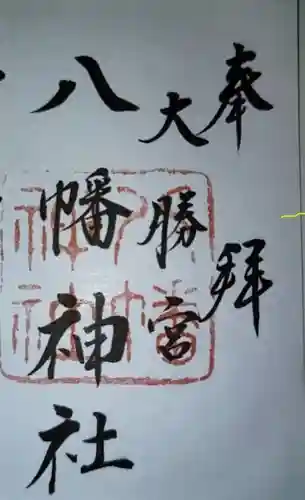 奉拝
大勝宮
八幡神社